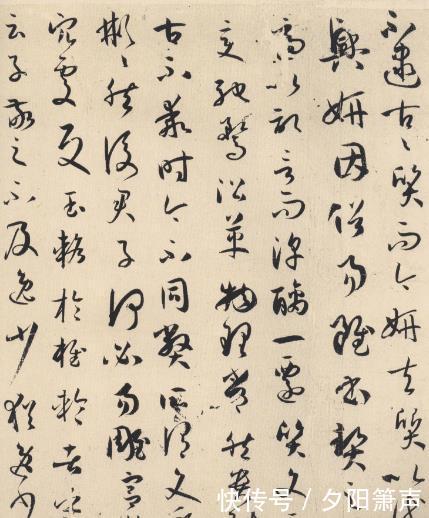 不逮古々質而今妍夫質以代
興妍因俗易雖書契之
適以記言而淳醨一遷質文
變馳騖沿革物理常然貴
古不乖時今不同弊所謂文質
彬々然後君子何必易雕宮
穴處反玉輅於椎輪者乎
云子敬之不及逸少猶逸少
快传号 / 夕阳箫声